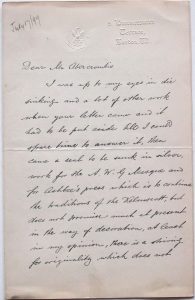 July 17/99
Dear Mr Abercrombie
I was up to my eyes in die
sinking and a lot of other work
when your letter came and it
had to be put aside till I could
spare time to answer it, then
came a seal to be sunk in silver,
work for the A. W. G Masque and
for Ashbee's press which is to continue
the traditions of the Kelmscott, but
does not promise much at present
in the way of decoration, at least
in my opinion, there is a striving
for originality which does not